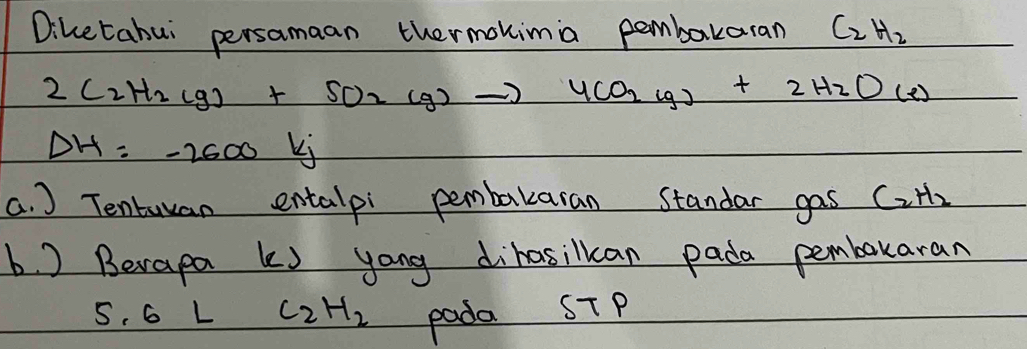 Diketahui persamaan thermokimia pembakaran C2H2
2 C2H2 (g) + 5O2 (g) → 4CO2 (g) + 2H2O (l)
DH = -2600 kj
a.) Tentukan entalpi pembakaran Standar gas C2H2
b.) Berapa kJ yang dihasilkan pada pembakaran
5,6 L C2H2 pada STP